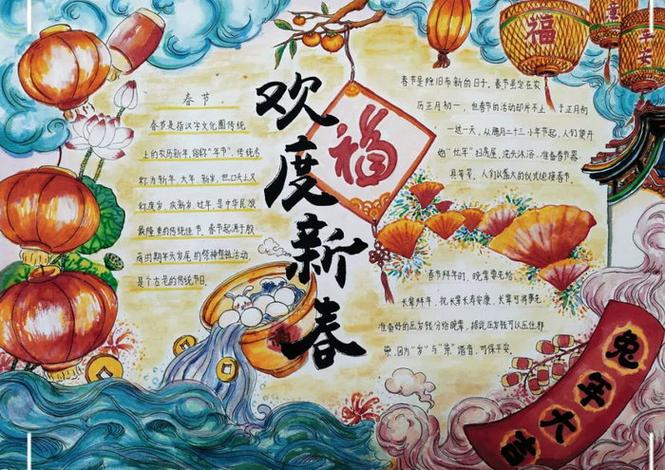 欢度新春
福
春节
春节是指汉字文化圈传统
上的农历新年,俗称“年节”,传统名
称为新年、大年、新岁,但口头上又
称度岁、庆新岁、过年,是中华民族
最隆重的传统佳节,春节起源于殷
商时期年头岁尾的祭神祭祖活动,
是个古老的传统节日。
福
平安
春节是除旧布新的日子,春节虽定在农
历正月初一,但春节的活动却并不止于正月初
一这一天,从腊月二十三小年节起,人们便开
始“忙年”:扫房屋、洗头沐浴、准备春节器
具等等,人们以盛大的仪式迎接春节。
春节拜年时,晚辈要先给
长辈拜年,祝长辈长寿安康,长辈可将事先
准备好的压岁钱分给晚辈,据说压岁钱可以压住邪
祟,因为“岁”与“祟”谐音,可保平安。
兔年大吉